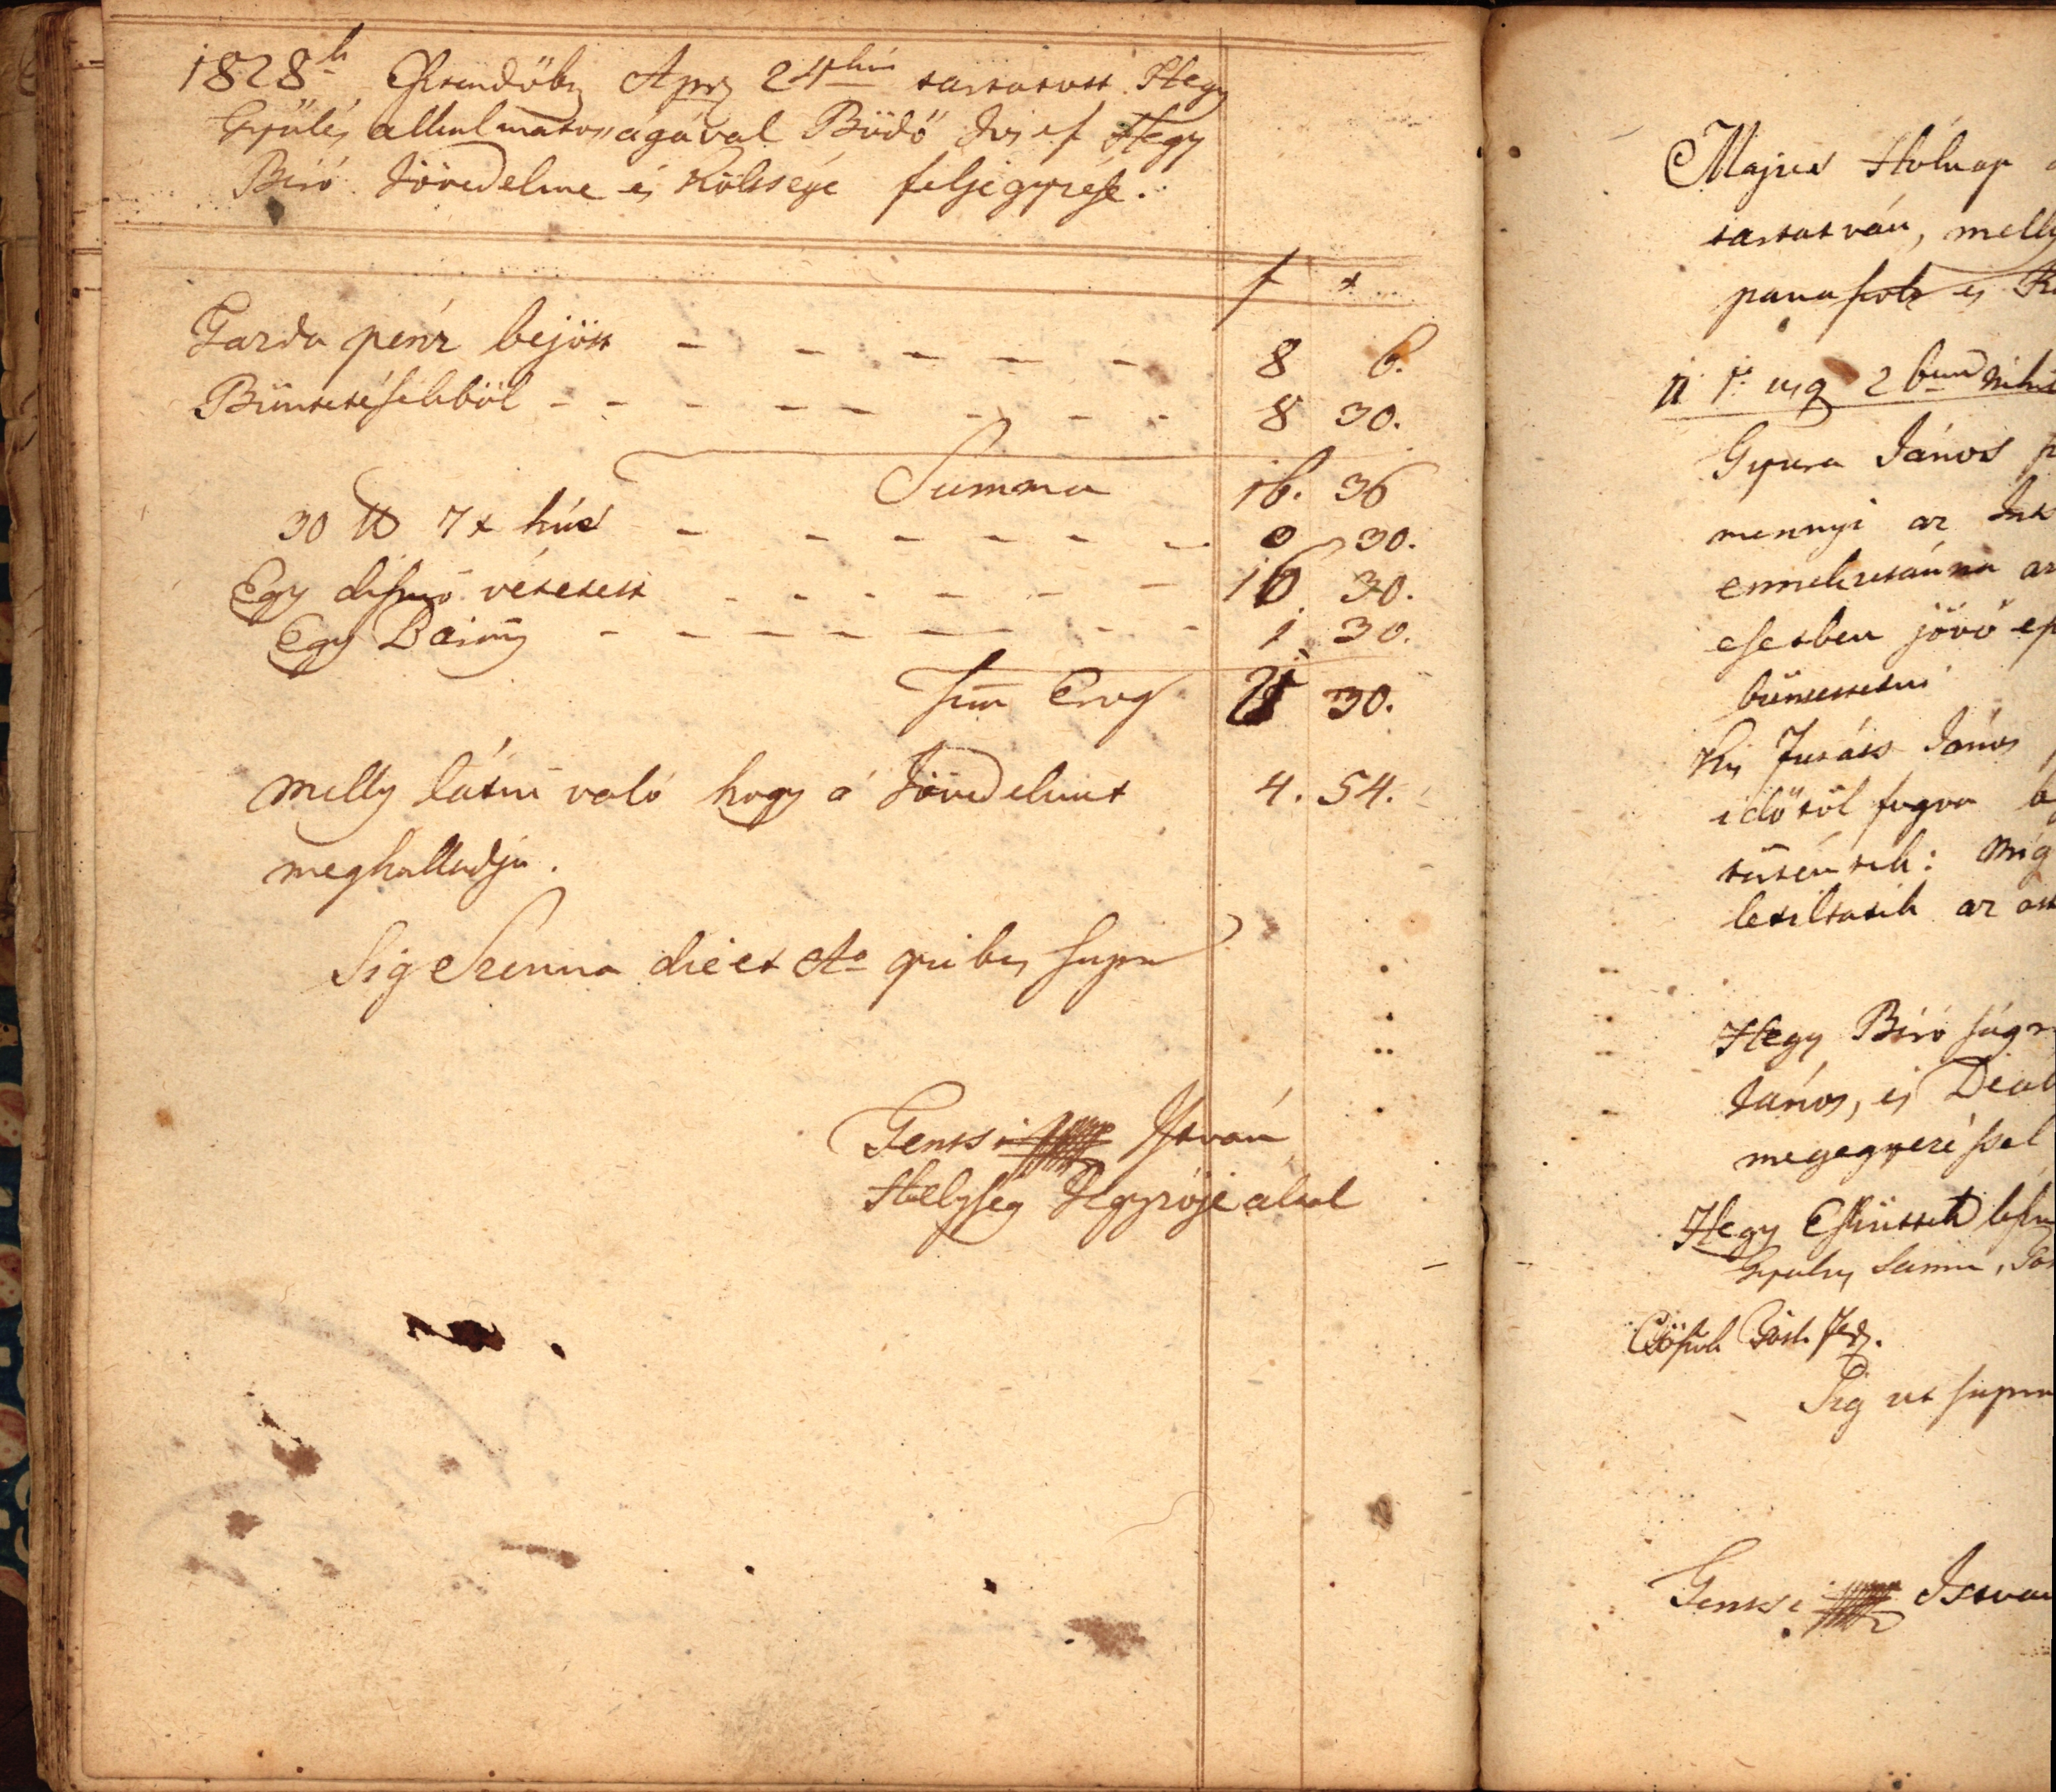 1828k Esztendőbn Apr 24kén tartatott Hegy
Gyűlés alkalmatosságával Büdő Josef Hegy
Biró Jövedelme és Költsége feljegyzése.
f x
Garda pénz bejött — — — — — — 8 6.
Büntetésekből — — — — — — — — 8 30.
Summa 16. 36
30 ℔ 7x hús — — — — — — 3 30.
Egy disznó vétetett — — — — — — 16 30.
Egy — — — — — — — — 1 30.
Sum Erog 21 30.
Melly látni való hogy á Jövedelmet 4. 54.
meghalladja.
Sig Szenna die et Ao quibus supra
Gentsi István
Helység Jegyzője által
Majus Hólnap
tartatván, melly
panaszok és
1 usq 2
Gyura János
mennyi az
ennekutánna az
esetben jövő
büntettetni
Kis Juráts János
időtől fogva
míg
letiltatik az
Hegy Biró ságr
János, és Deák
megegyezéssel
Hegy Esküttek
Gyulas Samu,
Pásk.
Sig ut supra
Gentsi Istvan